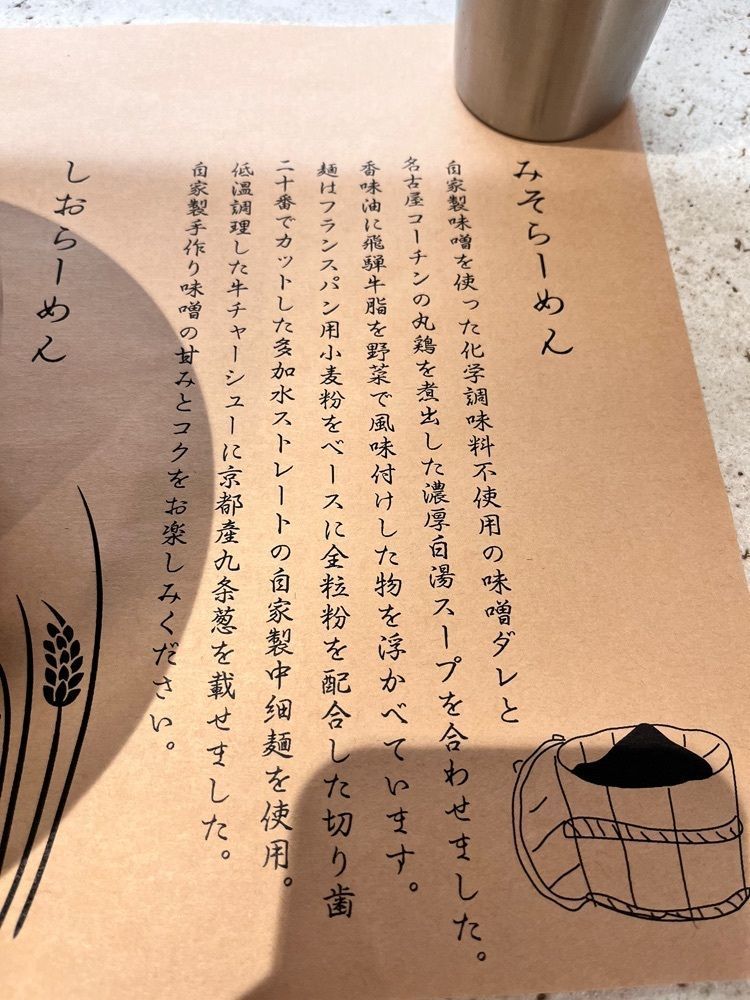 みそらーめん
自家製味噌を使った化学調味料不使用の味噌ダレと
名古屋コーチンの丸鶏を煮出した濃厚白湯スープを合わせました。
香味油に飛騨牛脂を野菜で風味付けした物を浮かべています。
麺はフランスパン用小麦粉をベースに全粒粉を配合した切り歯
二十番でカットした多加水ストレートの自家製中細麺を使用。
低温調理した牛チャーシューに京都産九条葱を載せました。
自家製手作り味噌の甘みとコクをお楽しみください。
しおらーめん